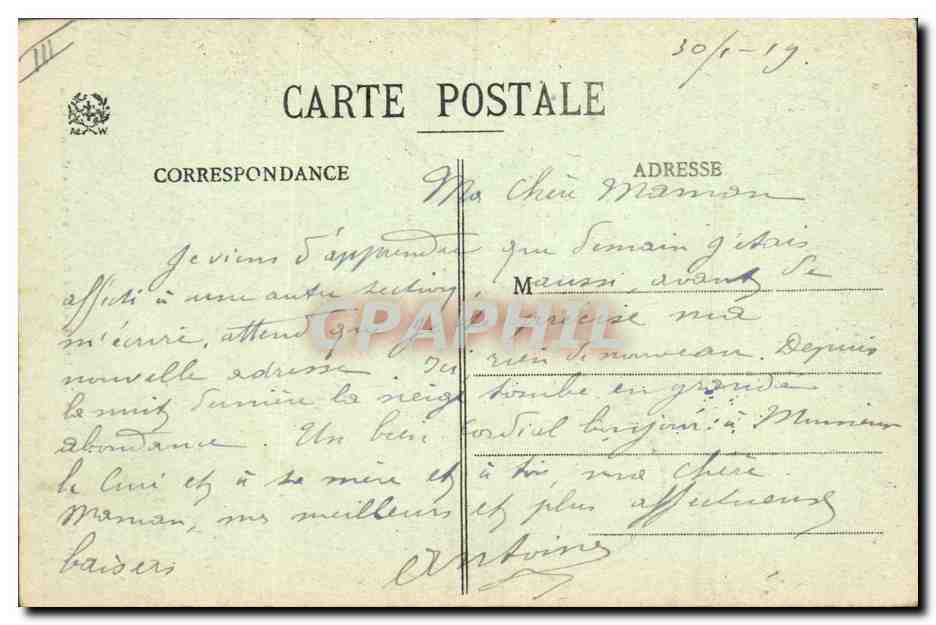 III
30/1-19.
CARTE POSTALE
A. W.
CORRESPONDANCE
ADRESSE
Ma Chère Maman
Je viens d'apprendre que demain j'étais
affecté à une autre section, M aussi, avant de
m'écrire, attend que je te précise ma
nouvelle adresse. Ici, rien de nouveau. Depuis
la nuit dernière la neige tombe en grande
abondance. Un bien cordial bonjour à Monsieur
le Curé et à sa mère et à toi, ma chère
Maman, mes meilleurs et plus affectueux
baisers Antoine
CPAPHIL